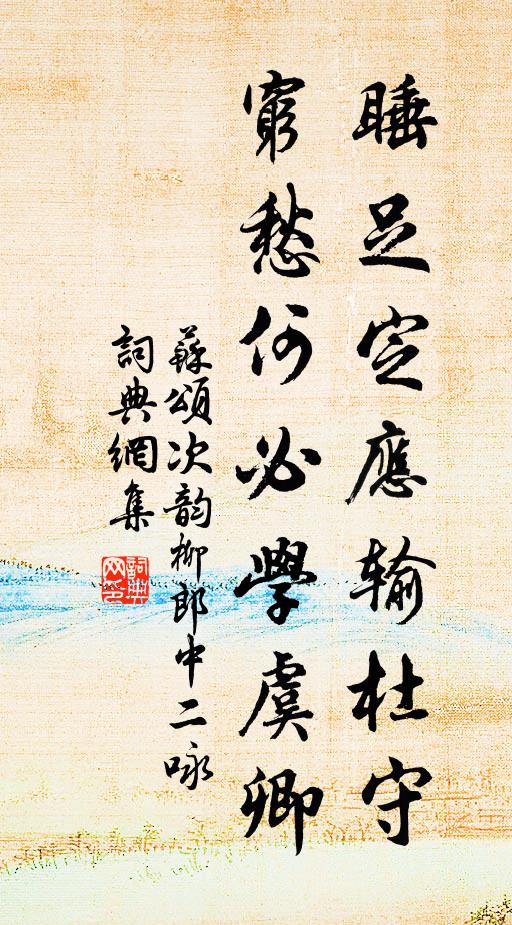 睡足定應输杜守
窮愁何必學虞卿
蘇頌次韵柳郎中二咏
詞典網集
詞典
网印